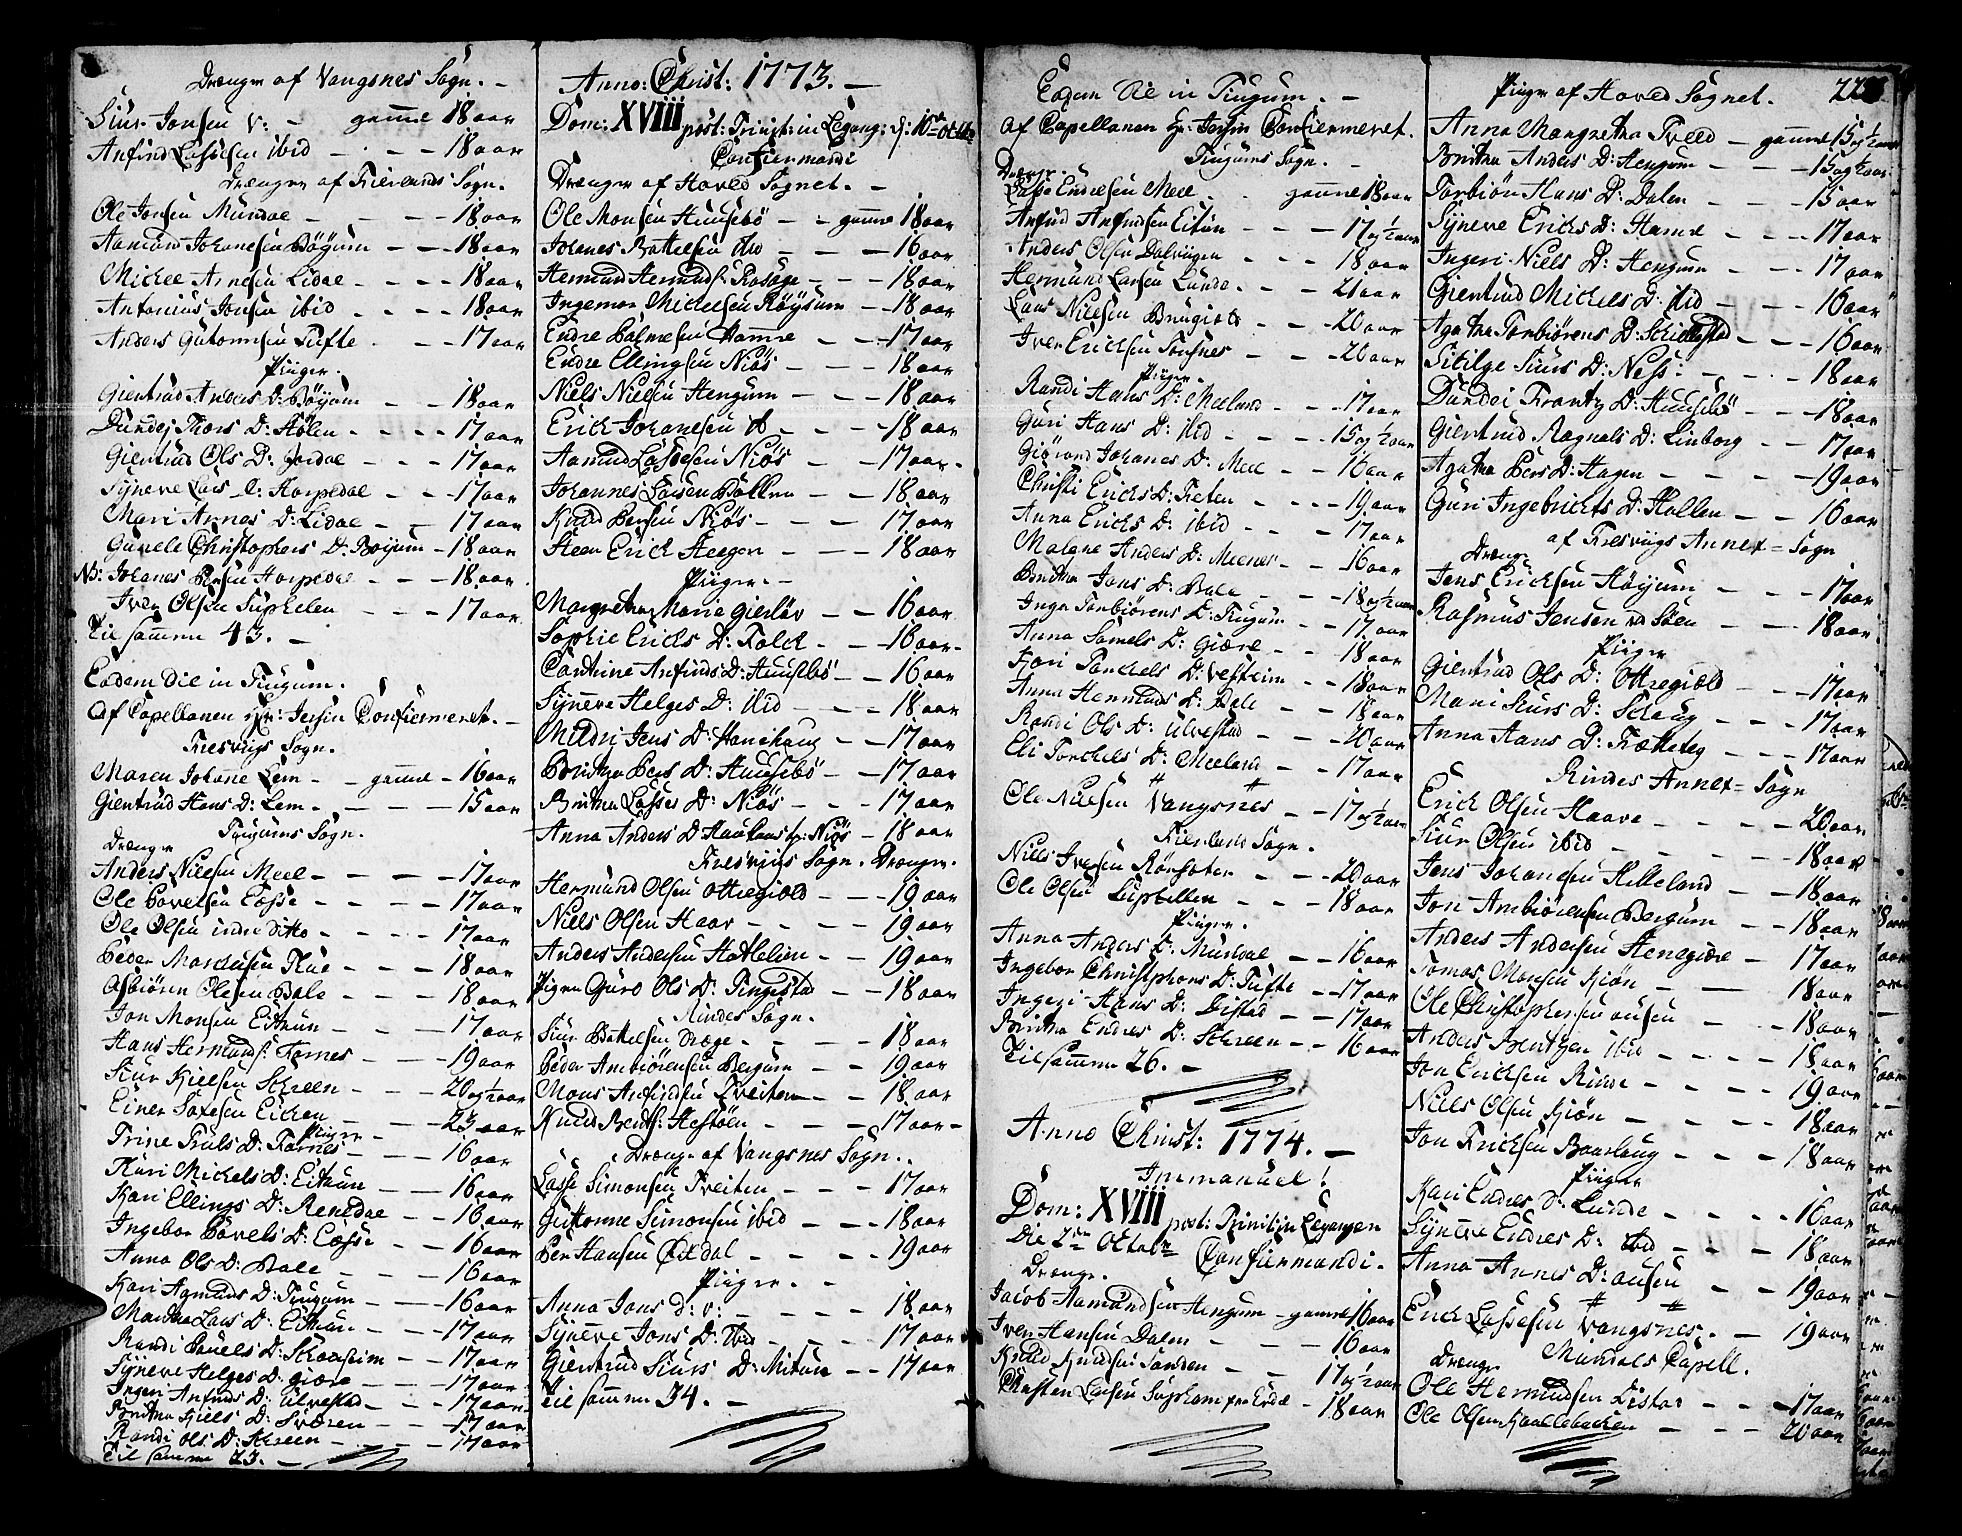 Drenger af Vangsnes Sogn. -
Siur Jonsen V: - gamle 18 aar
Anfind Lassesen ibid - 18 aar
Drenger af Fierlands Sogn.
Ole Jonsen Mundal - 18 aar
Aamund Johanesen Bøyum - 18 aar
Michel Arnesen Lidal - 18 aar
Antonius Jonsen ibid - 18 aar
Anders Guttormsen Tufte - 17 aar
Piiger.
Giertrud Anders D: Bøyum - 18 aar
Dundei Thors D: - 17 aar
Giertrud Ols D: Jordal - 17 aar
Synneve Lars D: Horpedal - 17 aar
Mari Arnes D: Lidal - 17 aar
Gunele Christophers D: Boyum - 18 aar
NB: Johanes Persen Horpedal - 18 aar
Iver Olsen Suphelen - 17 aar
Til sammen 43. -
Eodem Die in Tiugum.
Af Capellanen Hr: Jersin Confiermeret. -
Fresvigs Sogn.
Maren Johanne Lem - gamle - 16 aar
Giertrud Hans D: Lem - 15 aar
Tiugums Sogn.
Drenger
Anders Nielsen Meel - 17 aar
Ole Povelsen Eesse - 17 aar
Ole Olsen indre ditto - 17 aar
Peder Mardusen - 18 aar
Asbiøren Olesen Bale - 18 aar
Jon Monsen Eitrun - 17 aar
Hans Hermunds: Fornes - 19 aar
Siur Kielsen Schreen - 20 og ½ aar
Einer Saxesen Eichen - 23 aar
Piiger
Trine Truls D: Fornes - 16 aar
Kari Michels D: Eitrun - 16 aar
Kari Ellings D: Renedal - 16 aar
Ingebor Povels D: Eesse - 16 aar
Anna Ols D: Bale - 16 aar
Kari Agmunds D: Tiugum - 16 aar
Martha Lars D: Eitrun - 17 aar
Randi Pouels D: - 17 aar
Synneve Helges D: Giære - 17 aar
Inger Anfinds D: Ulvestad - 17 aar
Britha Kiels D: Sværen - 17 aar
Randi Ols D: Schreen - 17 aar
Til sammen 23. -
Anno: Christ: 1773. -
Dom: XVIII post: Trinit: in Legang: d: 10de Octobr
Confiermandi
Drenger af Hoved Sognet. -
Ole Monsen Huusebø - gamle 18 aar
Johanes Bottelsen ibid - 16 aar
Hermund Hermunds: - 18 aar
Ingemar Michelsen Røysum - 18 aar
Endre Hamre - 17 aar
Endre Ellingsen Niøs - 18 aar
Niels Nielsen Hengum - 18 aar
Erich Johanesen ib - 18 aar
Aamund Lassesen Niøs - 17 aar.
Johannes Larsen Hollen - 18 aar
Knud Persen Niøs - 17 aar
Steen Erich Steger - 18 aar
Piiger. -
Margretha Maria Gierløv - 16 aar
Sophie Erichs D: Foldt - 16 aar
Cathrine Anfinds D: Huusebø - 16 aar
Synneve Helges D: ibid - 18 aar
Mildri Jens D: Hanehaug - 17 aar
Britha Pers D: Huusebø - 17 aar
Britha Lasses D: Niøs - 17 aar
Anna Anders D Niøs - 18 aar
Fresvigs Sogn. Drenger.
Hermund Olsen Ottregiold - 19 aar
Niels Olsen Haar - 19 aar
Anders Andersen Hattelien - 19 aar
Pigen Guro Ols D: Tingestad - 18 aar
Rindes Sogn.
Siur Bottelsen Dræge - 18 aar
Peder Ambiørensen Bergum - 19 aar
Mons Anfindsen Tveiten - 18 aar
Knud Bents: Hestøen - 17 aar -
Drenge af Vangsnes Sogn.
Lasse Simonsen Tveiten - 17 aar
Guttorme Simonsen ibid - 18 aar
Per Hansen Christdal - 19 aar
Piiger.
Anna Jons D: V: - 18 aar
Synneve Jons D: ibid - 17 aar
Giertrud Siurs D: - 17 aar
Til sammen 34. -
Eodem Die in Tiugum. -
Af Capellanen Hr: Jersin Confiermeret.
Tiugums Sogn. -
Drenge.
Lasse Endresen Meel - gamle 18 aar
Anfind Anfindsen Eitun - 17 og ½ aar
Anders Olsen Dalvigen - 18 aar
Hermund Larsen Lunde - 21 aar
Lars Nielsen - 20 aar
Iver Erichsen Tonsnes - 20 aar
Piiger.
Randi Hans D: Meeland - 17 aar
Guri Hans D: ibid - 15 og ½ aar
Giørond Johanes D: Meel - 16 aar
Christi Erichs D: Feten - 19 aar
Anna Erichs D: ibid - 17 aar
Malene Anders D: Meenes - 16 aar
Britha Jons D: Bale - 18 og ½ aar
Inga Torbiørens D: Tiugum - 17 aar
Anna Samels D: Giære - 18 aar
Torchels D: Vestrim - 18 aar
Anna Hermunds D: Bale - 18 aar
Randi Ols D: Ulvestad - 20 aar
Eli Torchels D: Meeland - 17 aar
Ole Nielsen Vangsnes - 17 og ½ aar
Fierlands Sogn.
Niels Ivesen Rønseter - 20 aar
Ole Olsen Suphellen - 18 aar
Piiger.
Anna Anders D: Mundal - 16 aar
Ingebor Christophers D: Tufte - 17 aar
Ingeri Hans D: Distad - 17 aar
Britha Endres D: Schreen - 16 aar
Til sammen 26. -
Anno Christ: 1774. -
Immanuel!
Dom: XVIII post: Trinit: in Legangen
Die 2den Octobr Confiermandi.
Drenge.
Jacob Aamundsen Hengum - gamle 16 aar
Iver Hansen Dalen - 16 aar
Knud Knudsen Sanden - 17 og ½ aar
Christen Larsen - 18 aar
Piiger af Hoved Sognet. 22
Anna Margretha Tveed - gamle 15 og ½ aar
Britha Anders D: Hengum - 15 og ½ aar
Torbiør Hans D: Dalen - 15 aar
Synneve Erichs D: Hamre - 17 aar
Ingeri Niels D: Hengum - 17 aar
Giertrud Michels D: ibid - 16 aar
Agatha Torbiørens D: - 16 aar
Sitilge Siurs D: Ness: - 18 aar
Dundei Frantz D: Huusebø - 18 aar
Giertrud Ragnals D: Linborg - 17 aar
Agatha Pers D: Hagen - 19 aar
Guri Ingebrichts D: Hollen - 16 aar
af Fresvigs Annex = Sogn
Drenge
Jens Erichsen Høyum - 17 aar
Rasmus Jensen - 18 aar
Piiger
Giertrud Ols D: Ottregiold - 17 aar
Mari Siurs D: - 17 aar
Anna Hans D: - 17 aar
Rindes Annex = Sogn
Erich Olsen Haave - 20 aar
Siur Olsen ibid - 18 aar
Jens Johanesen Hilleland - 18 aar
Jon Ambiørensen Bergum - 18 aar
Anders Andersen Stenegiære - 17 aar
Tomas Monsen Kiøn - 18 aar
Ole Christophersen ousen - 18 aar
Anders Bentzen ibid - 18 aar
Jon Erichsen Rinde - 19 aar
Niels Olsen Kiøn - 18 aar
Jon Erichsen Baarhaug - 18 aar
Piiger
Kari Endres D: Lunde - 16 aar
Synneve Endres D: ibid - 18 aar
Anna Annes D: ousen - 19 aar
Erich Lassesen Vangsnes. - 19 aar
Drenge Mundals Capell.
Ole Hermundsen Distad - 17 aar
Ole Olsen - 20 aar